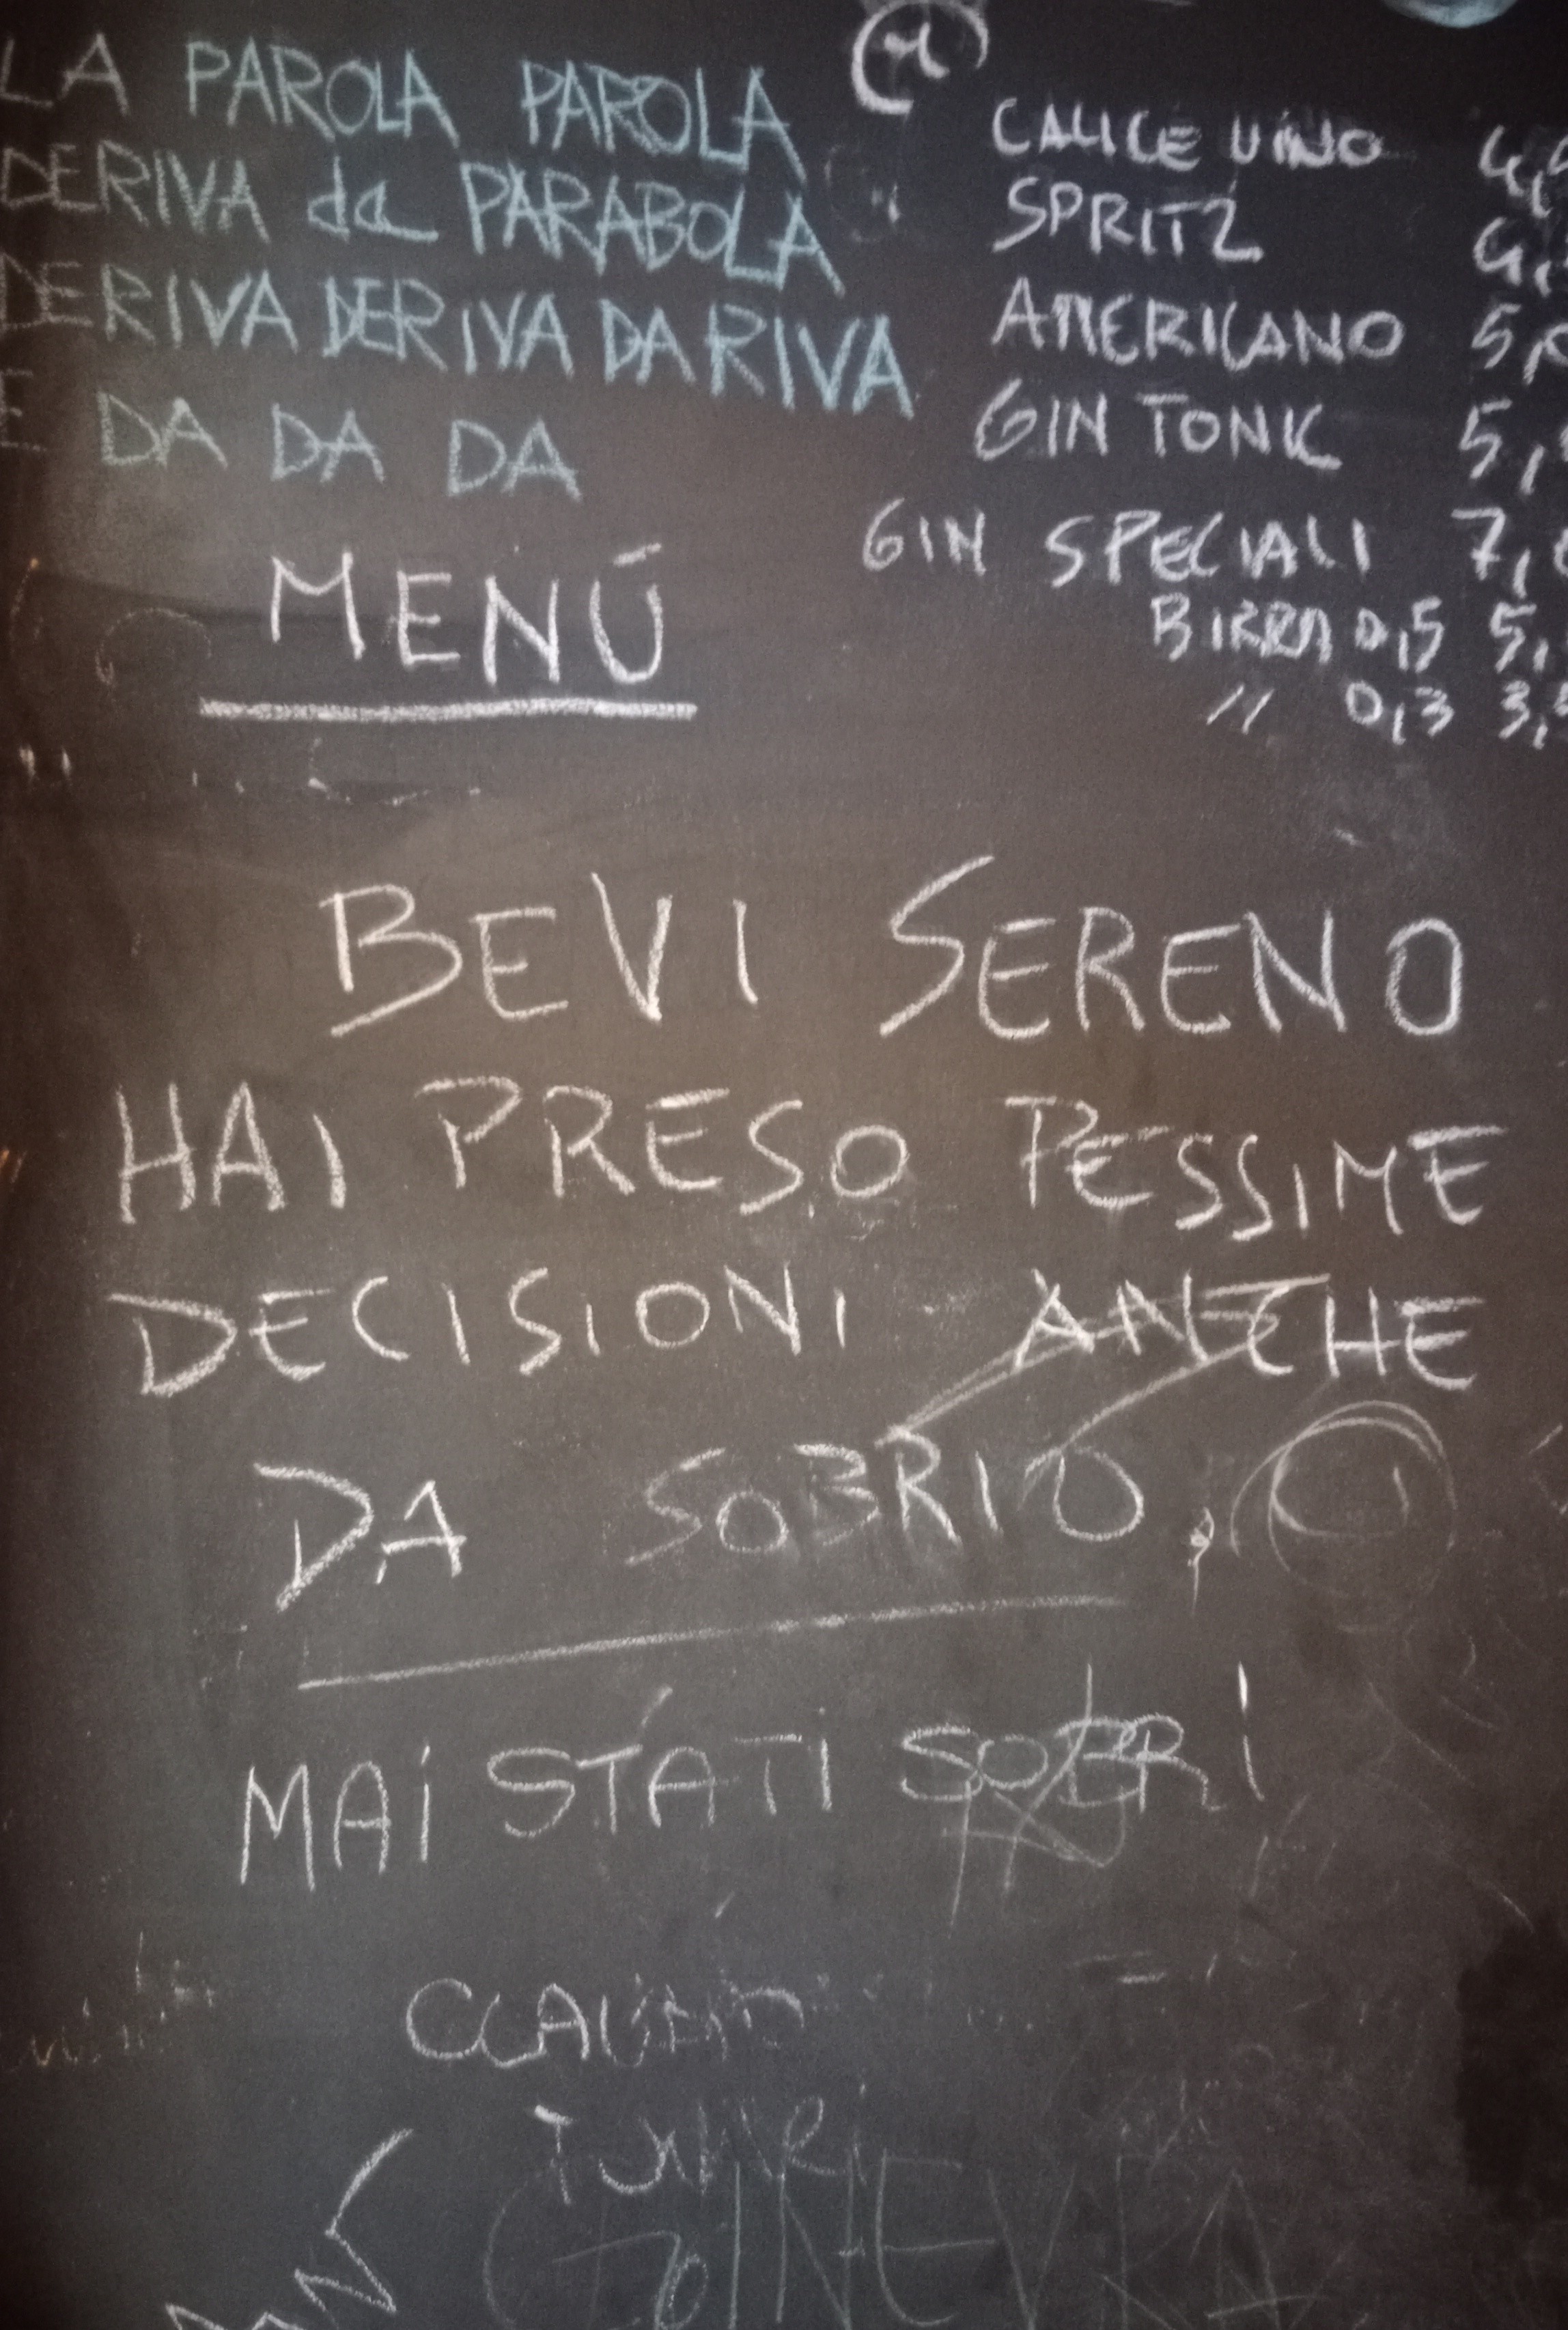 LA PAROLA PAROLA
DERIVA da PARABOLA
DERIVA DERIVA DA RIVA
E DA DA DA
CALICE VINO 4,
SPRITZ 4,
AMERICANO 5,
GIN TONIC 5,
GIN SPECIALI 7,
BIRRA 0,5 5,
" 0,3 3,
MENÚ
BEVI SERENO
HAI PRESO PESSIME
DECISIONI ANCHE
DA SOBRIO,
MAI STATI SOBRI
GINEVRA